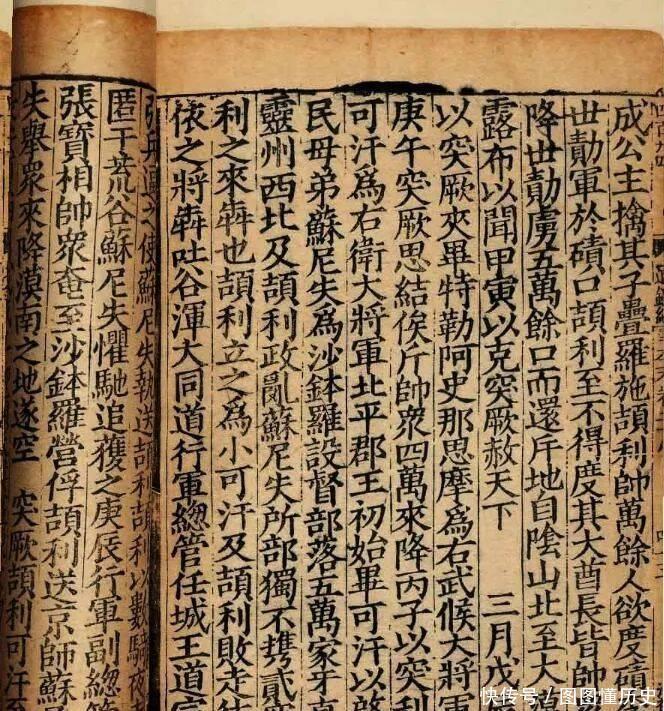 成公主擒其子疊羅施頡利帥萬餘人欲度磧
世勣軍於磧口頡利至不得度其大酋長皆帥
降世勣虜五萬餘口而還斥地自陰山北至大
露布以聞甲寅以克突厥赦天下　三月戊
以突厥夾畢特勒阿史那思摩爲右武候大將軍
庚午突厥思結俟斤帥衆四萬來降丙子以突利
可汗爲右衛大將軍北平郡王初始畢可汗以啓
民母弟蘇尼失爲沙鉢羅設督部落五萬家牙
靈州西北及頡利政亂蘇尼失所部獨不攜貳
利之來犇也頡利立之爲小可汗及頡利敗走
依之將犇吐谷渾大同道行軍緫管任城王道
之使蘇尼失執送頡利頡利以數騎夜
匿于荒谷蘇尼失懼馳追獲之庚辰行軍副緫
張寶相帥衆奄至沙鉢羅營俘頡利送京師蘇
失舉衆來降漠南之地遂空　突厥頡利可汗至
快传号 / 图图懂历史